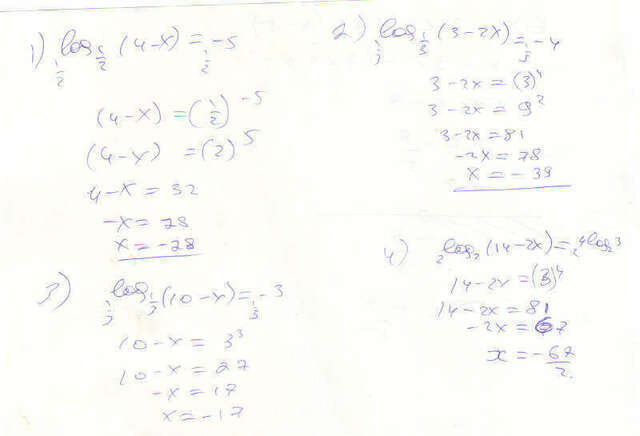 1) ½^(log_{1/2} (4-x)) = ½^(-5)
(4-x) = (1/2)^{-5}
(4-x) = (2)^5
4-x = 32
-x = 28
x = -28
2) ⅓^(log_{1/3} (3-2x)) = ⅓^(-4)
3-2x = (3)^4
3-2x = 9^2
3-2x = 81
-2x = 78
x = -39
3) ⅓^(log_{1/3} (10-x)) = ⅓^(-3)
10-x = 3^3
10-x = 27
-x = 17
x = -17
4) 2^(log_2 (14-2x)) = 2^(4log_2 3)
14-2x = (3)^4
14-2x = 81
-2x = 67
x = -67/2